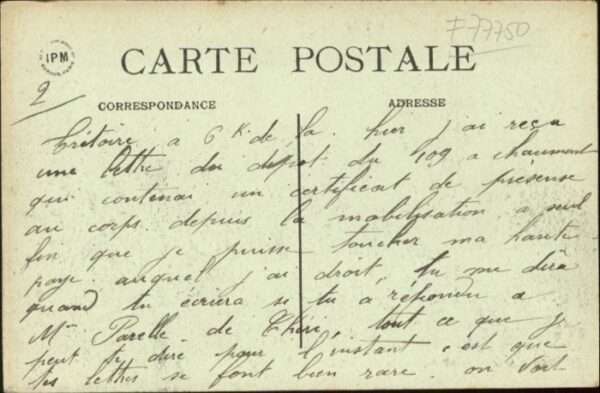 F 77750
IPM
CARTE POSTALE
2
CORRESPONDANCE
ADRESSE
à 6 K. de la. hier j'ai reçu
une lettre du depot du 109 a chaumont
qui contenai un certificat de présense
au corps depuis la mobilisation a seul
fin que je puisse toucher ma haute
paye auquel j'ai droit, tu me dira
quand tu écriera si tu a répondu a
Mme Parelle de tout ce que je
peut te dire pour l'instant c'est que
tes lettres se font bien rare on voit